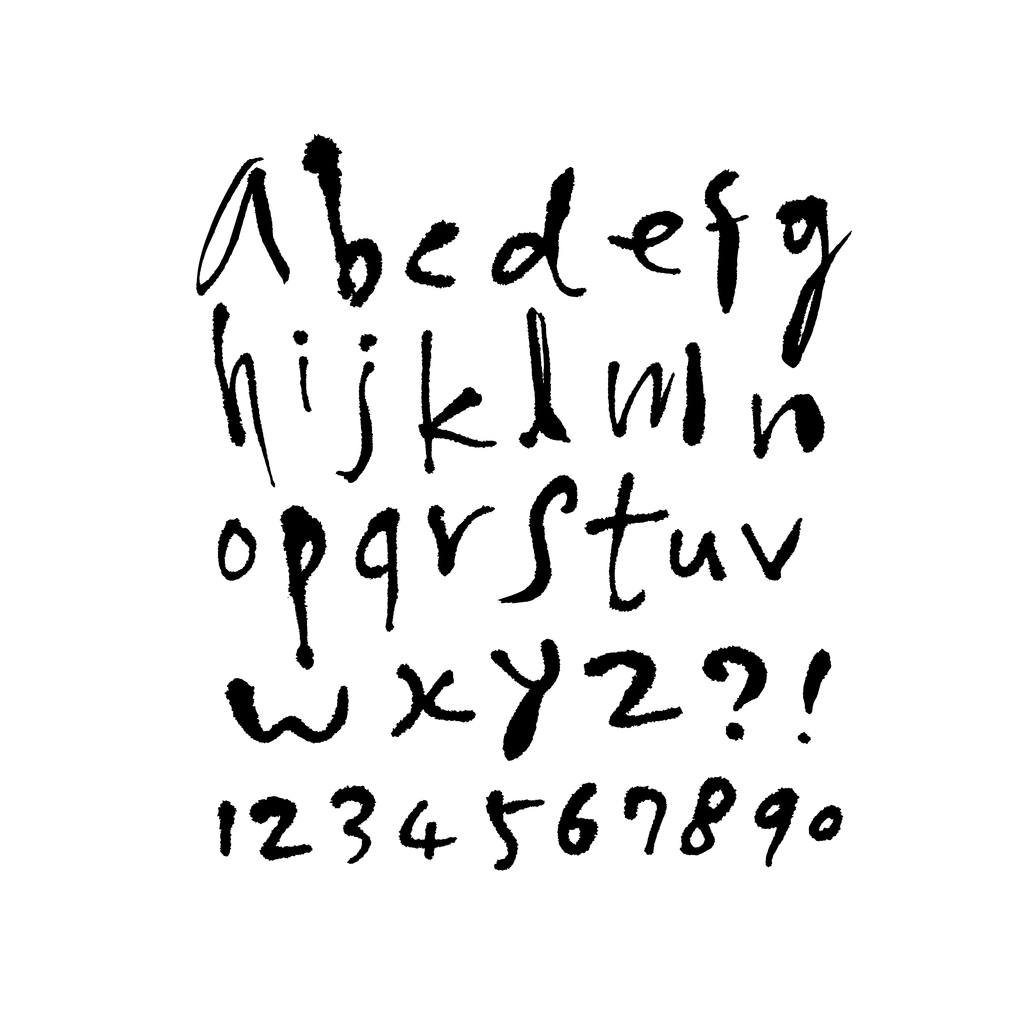 abcdefg
hijklmn
opqrstuv
wxyz?!
1234567890